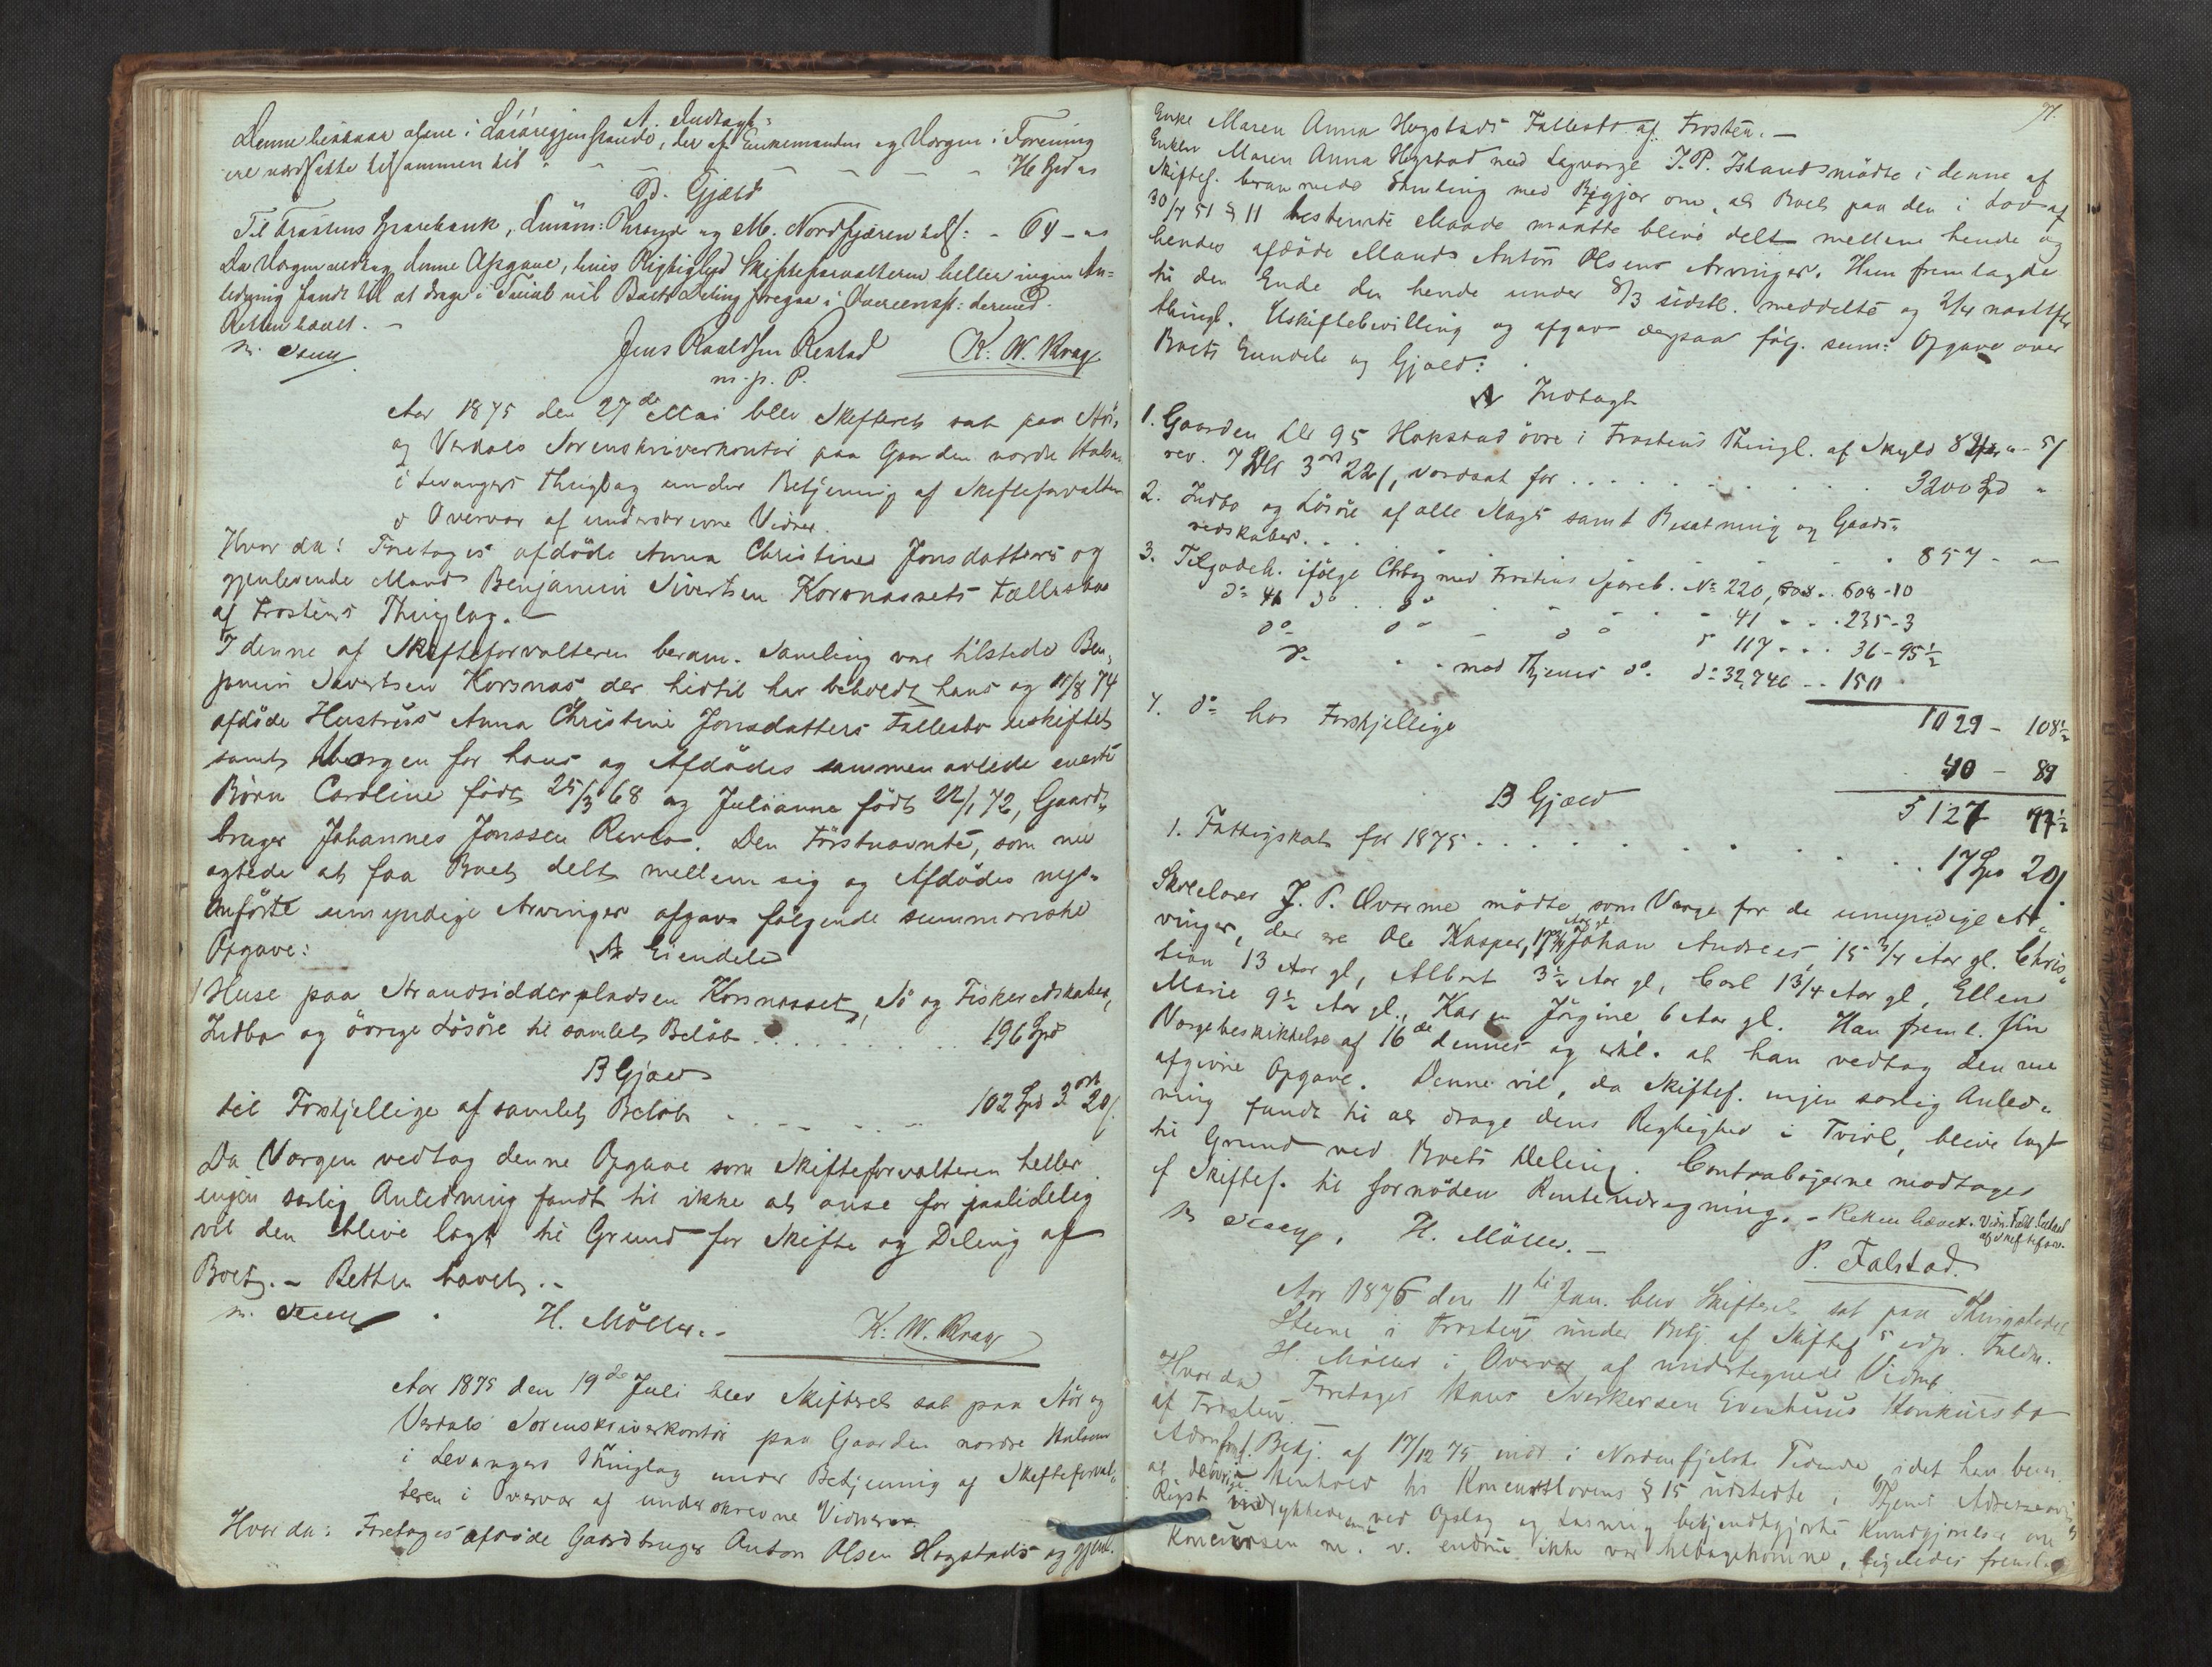 A. Indtægt:
Denne bestaar alene i Løsøregjenstande, der af Enkemanden og Værgen i Forening
ere værdsatte tilsammen til " - - - - - 76 Spd "
B. Gjæld
Til Frostens Sparebank, Thrane og M. Nordfjæren tils: - 64 - "
Da Værgen vedtog denne Opgave, hvis Rigtighed Skifteforvalteren heller ingen An-
ledning fandt til at drage i Tvivl vil Boets Deling foregaa i Overensst: dermed.
Retten hævet. -
Jens Roaldsen Restad K. W. Krag
m. p. P.
Aar 1875 den 27de Mai blev Skifteret sat paa Stør-
og Værdals Sorenskriverkontor paa Gaarden nordre Halsan
i Levangers Thinglag under Betjening af Skifteforvalteren
i Overvær af underskrevne Vidner.
Hvor da: Foretoges afdøde Anna Christine Jonsdatters og
gjenlevende Mand Benjamin Sivertsen Korsnæssets Fællesbo
af Frostens Thinglag. -
I denne af Skifteforvalteren beram. Samling var tilstede Ben-
jamin Sivertsen Korsnæs der hidtil har beholdt hans og 11/8 74
afdøde Hustrus Anna Christine Jonsdatters Fællesbo uskiftet
samt Værgen for hans og Afdødes sammen avlede eneste
Børn Caroline født 25/3 68 og Julianna født 22/1 72, Gaard-
bruger Johannes Jonssen. Den Førstnævnte, som nu
agtede at faa Boet delt mellem sig og Afdødes nys-
anførte umyndige Arvinger afgav følgende summariske
Opgave:
A. Eiendele
1 Huse paa Strandsidderpladsen Korsnæsset, Sø og Fiskeredskaber,
Indbo og øvrige Løsøre til samlet Beløb . . . . . . 196 Spd
B Gjæld
til Forskjellige af samlet Beløb . - - . - - 102 Spd 3 ort 20 s.
Da Værgen vedtog denne Opgave som Skifteforvalteren heller
ingen særlig Anledning fandt til ikke at anse for paalidelig
vil den blive lagt til Grund for Skifte og Deling af
Boet. - Retten hævet. -
H. Möller. - K. W. Krag
Aar 1875 den 19de Juli blev Skifteret sat paa Stør og
Værdals Sorenskriverkontor paa Gaarden nordre Halsan
i Levangers Thinglag under Betjening af Skifteforval-
teren i Overvær af underskrevne Vidner.
Hvor da: Foretoges afdøde Gaardbruger Anton Olsen Hogstads og gjenl.
71.
Enke Maren Anna Hogstads Fællesbo af Frosten. -
Enken Maren Anna Hogstad med Lagværge J. P. Islands mødte i denne af
Skiftef. berammede Samling med Begjær om, at Boet paa den i Lov af
30/7 51 § 11 bestemte Maade maatte blive delt mellem hende og
hendes afdøde Mands Anton Olsens Arvinger. Hun fremlagde
til den Ende den hende under 8/3 sidstl. meddelte og 2/4 næstefter
thingl. Uskiftebevilling og afgav derpaa følg. sum: Opgave over
Boets Eiendele og Gjæld:
A Indtægt
1. Gaarden LNr 95 Hokstad øvre i Frostens Thingl. af Skyld
rev. 7 Dlr 3 ort 22 s, værdsat for . . . . . . . 3200 Spd "
2. Indbo og Løsøre af alle Slags samt Besætning og Gaards-
redskaber. . . . - - - . 857 - "
3. Tilgodeh. ifølge Ctrbog med Frostens Spareb. No 220, 608 - 10
do do - - - 41 . . . 235 - 3
do do - do 117 . . . 36 - 95½
do - - med Thjems do. do 32,746 - - 150
1029 - 108½
4. do hos Forskjellige 40 - 89
5127 77½
B Gjæld
1. Fattigskat for 1875 . . . . . . . . . 17 Spd 20 s.
Skolelærer J. P. Qvarme mødte som Værge for de umyndige Ar-
vinger, der ere Ole Kasper, Johan Andreas, 15 3/4 Aar gl. Chris-
tian 13 Aar gl, Albert 3½ Aar gl, Carl 1 3/4 Aar gl, Ellen
Marie 9½ Aar gl., Karen Jørgine 6 Aar gl. Han freml. sin
Værgebeskikkelse af 16de dennes og erkl. at han vedtog den nu
afgivne Opgave. Denne vil, da Skiftef. ingen særlig Anled-
ning fandt til at drage dens Rigtighed i Tvivl, blive lagt
til Grund ved Boets Deling. Contrabøgerne modtages
af Skiftef. til fornøden Renteudregning. - Retten hævet.
H. Möller. -
P. Falstad.
Aar 1876 den 11te Jan. blev Skifteret sat paa Thingstedet
Steene i Frosten under Betj. af Skiftef.s edsv. Fuldm.
H. Möller i Overvær af undertegnede Vidner
Hvor da Foretoges Hans Sverkersen Evenhuus Konkursbo
af Frosten. -
Bekj. af 17/12 75 indr. i Nordenfjelske Tidende, idet han bem.
at de øvrige i Henhold til Konkurslovens § 15 udstedte, i Thjems Adresseavis og
Rigst. indrykkede samt ved Opslag og Læsning bekjendtgjorte Kundgjørelse om
Koncursen m. v. endnu ikke var tilbagekomne, ligeledes freml.